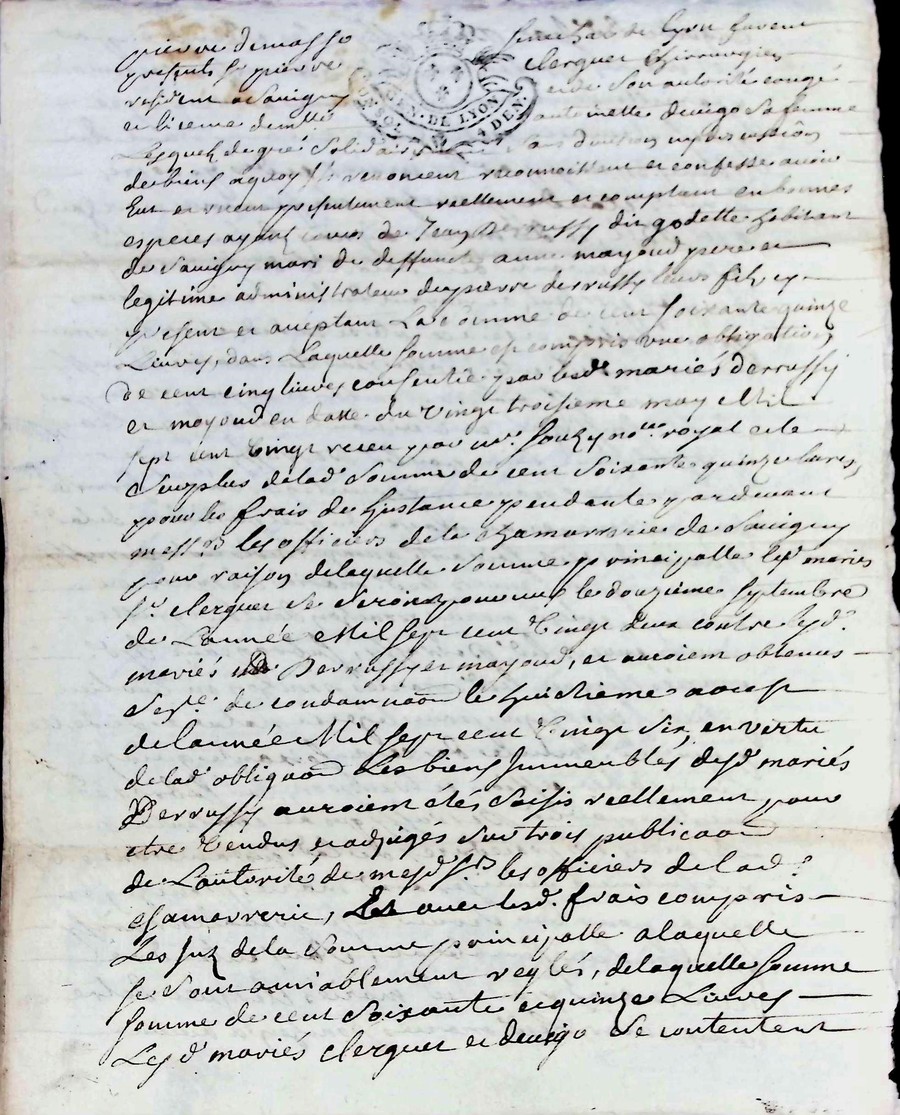 pierre demasso senechal de Lyon furent
presents Sr pierre Clerguet Chirurgien
resident a Savigny et de son autorité congé
et licence demlle antoinette devigo sa femme
GEN. DE LYON 4 DEN.
Lesquels de gré Solidairement Sans division ny discussion
de biens a quoy ils renoncent reconnoissent et confesse avoir
Eut et receu presentement reellement et comptant en bonnes
especes ayant cours de Jean Derrussy dit godette habitant
de Savigny mari de deffuncte anne mayoud pere et
legitime administrateur de pierre derrussy leurs fils, cy
present et acceptant La somme de cent soixante quinze
Livres, dans Laquelle somme est compris une obligation
de cent cinq livres consentie par lesd. mariés derrussy
et mayoud en datte du vingt troisieme may Mil
sept cent vingt receu par me. Souzy nore. royal et le
Surplus de lad. Somme de cent Soixante quinze livres,
pour les frais de Linstance pendante pardevant
mess. rs les officiers de la chamarrerie de Savigny
pour raison delaquelle Somme principalle lesd. mariés
Sr. clerguet se seroint pourvus le douzieme septembre
de L'année Mil sept cent vingt deux contre lesd.
mariés Derrussy et mayoud, et auroient obtenus
Sentce. de condamnaon le huictieme aoust
de lannée Mil sept cent vingt six, en vertu
de lad. obligaon Les biens Immeubles desd. mariés
Derrussy auroient étés Saisis reellement pour
etre vendus et adjugés Sur trois publicaon
de L'autorité de mesd. Srs les officiers de lad.
chamarrerie, avec lesd. frais compris
Les Inz de la Somme principalle a laquelle
se Sont amiablement reglés, de laquelle somme
somme de cent Soixante et quinze Livres
Lesd. mariés clerguet et devigo se contentent